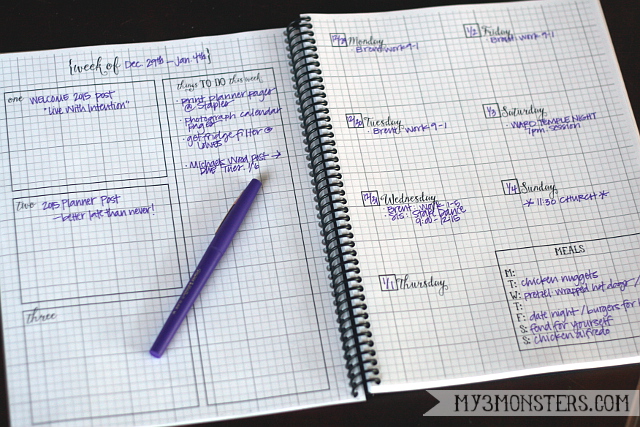 {week of Dec. 29th - Jan. 4th}
one WELCOME 2015 post
"Live With Intention"
two 2015 Planner Post
- better late than never!
three
things TO DO this week
· print planner pages
@ Staples
· Photograph calendar
pages
· get fridge filter @
Lowes
· Michaels Wood Post →
Due Tues. 1/6
12/29 Monday
· Brent work 9-1
12/30 Tuesday
· Brent work 9-1
12/31 Wednesday
Brent work
Stake Dance
9:00 - 12:15
1/1 Thursday
1/2 Friday
· Brent work 9-1
1/3 Saturday
· WARD TEMPLE NIGHT
7pm session
1/4 Sunday
* 11:30 CHURCH *
MEALS
M:
T: chicken nuggets
W: pretzel wrapped hot dogs /
T:
F: date night / burgers for
S: fend for yourself
S: chicken alfredo
MY3MONSTERS.COM